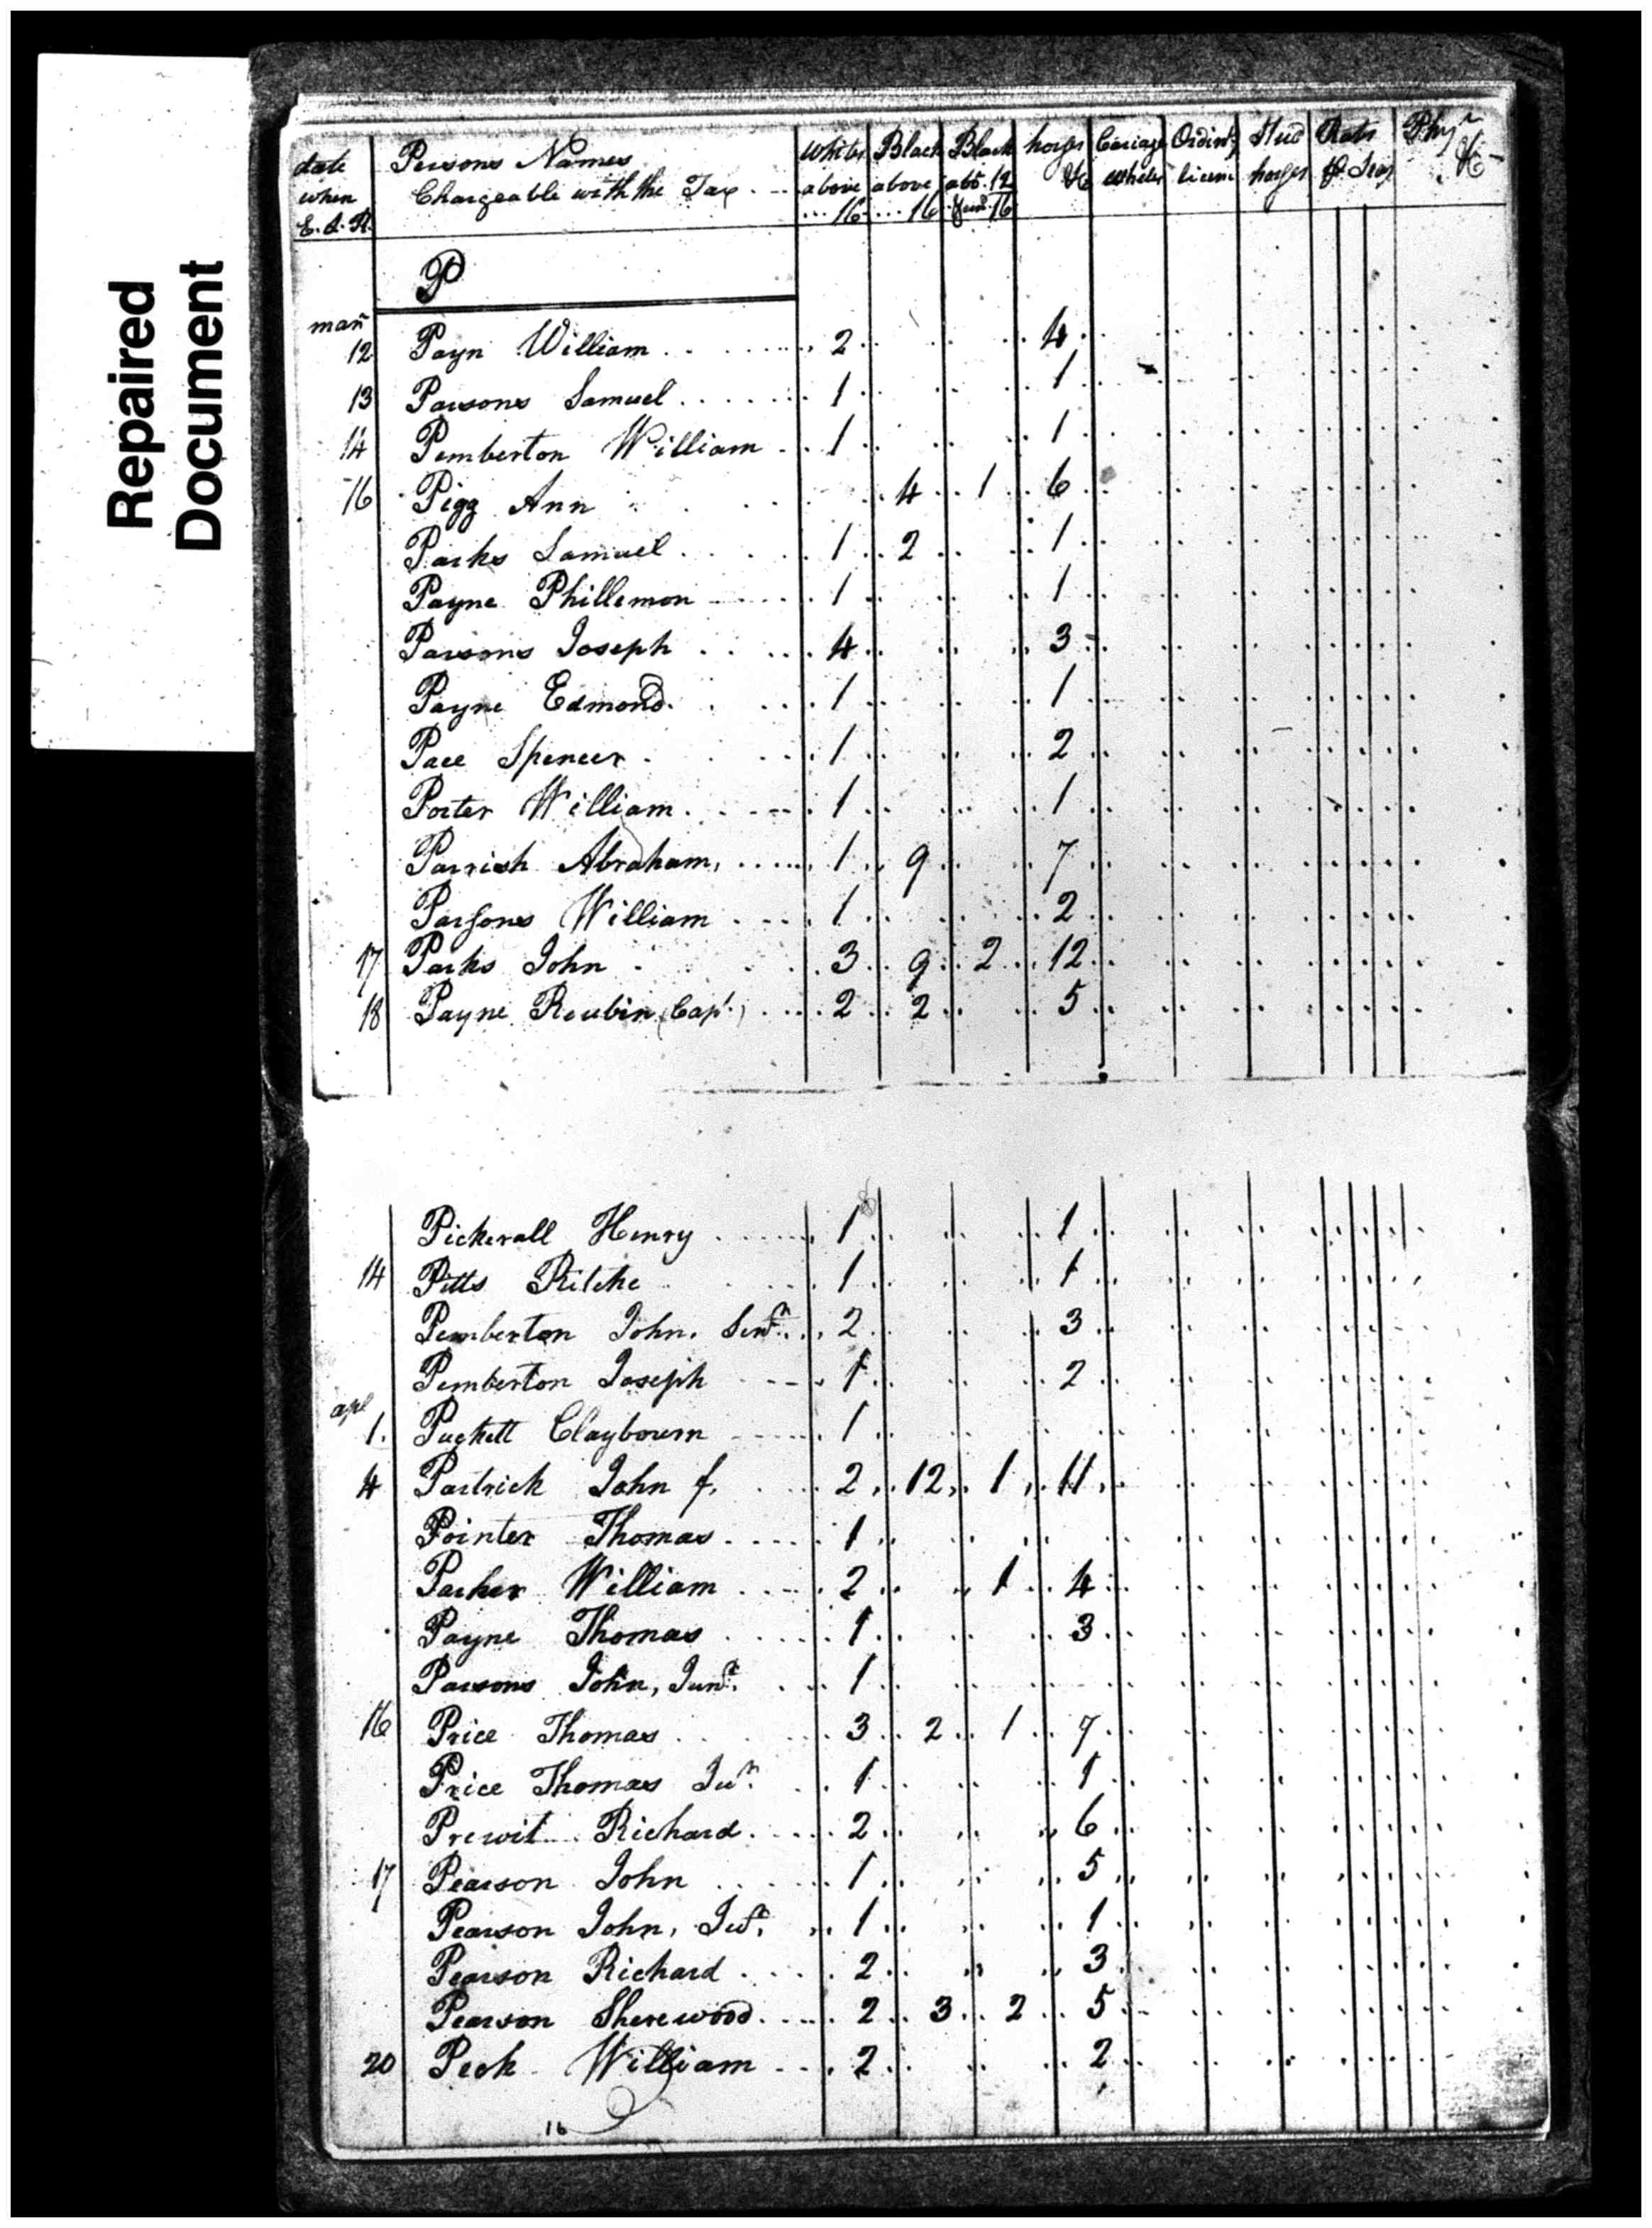 Repaired
Document
date when E. A. R. Persons Names Chargeable with the Tax Whites above 16 Black above 16 Black abo. 12 & und. 16 horses &c Carriage wheles Ordin'y licence Stud horses Rates of Seas Phy.n &c
P
mar
12 Payn William 2 4
13 Parsons Samuel 1 1
14 Pemberton William 1 1
16 Pigg Ann 4 1 6
Parks Samuel 1 2 1
Payne Phillemon 1 1
Parsons Joseph 4 3
Payne Edmond 1 1
Pace Spencer 1 2
Porter William 1 1
Parrish Abraham, 1 9 7
Parsons William 1 2
17 Parks John 3 9 2 12
18 Payne Reubin (Cap.t) 2 2 5
Pickerall Henry 1 1
14 Pitts 1 1
Pemberton John, Senr. 2 3
Pemberton Joseph 1 2
apl
1. Puckett Claybourn 1
4 Partrick John f. 2 12 1 11
Pointer Thomas 1
Parker William 2 1 4
Payne Thomas 1 3
Parsons John, Junr. 1
16 Price Thomas 3 2 1 7
Price Thomas Jur. 1 1
Prewit Richard 2 6
17 Pearson John 1 5
Pearson John, Jur. 1 1
Pearson Richard 2 3
Pearson Sherewood 2 3 2 5
20 Peek William 2 2
16